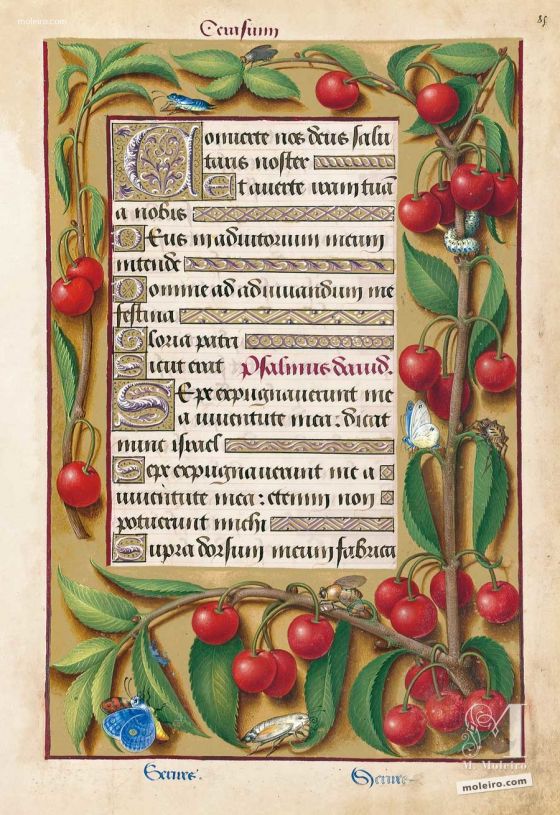 moleiro.com
Cerasum
85
Conuerte nos deus salu
taris noster
Et auerte iram tuā
a nobis
Deus in adiutorium meum
intende
Domine ad adiuuandum me
festina
Gloria patri
Sicut erat Psalmus dauid.
Sepe expugnauerunt me
a iuuentute mea : dicat
nunc israel
Sepe expugnauerunt me a
iuuentute mea : etenim non
potuerunt michi
Supra dorsum meum fabrica
M. Moleiro
moleiro.com